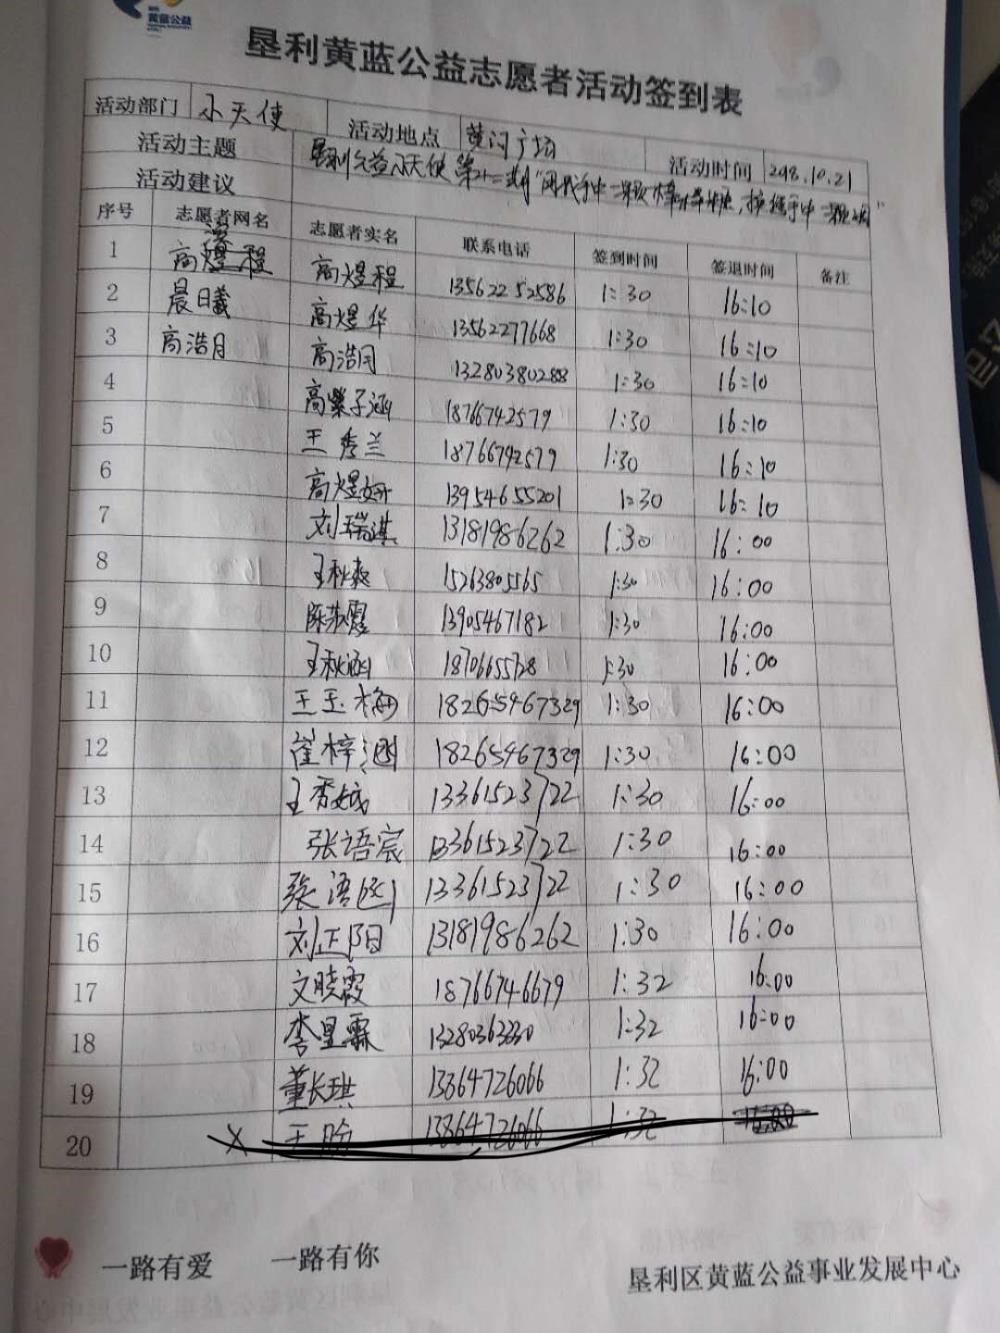 黄蓝公益
垦利黄蓝公益志愿者活动签到表
活动部门 小天使 活动地点 黄河广场 活动时间 2018.10.21
活动主题 垦利公益小天使 第二十二期“
活动建议
序号 志愿者网名 志愿者实名 联系电话 签到时间 签退时间 备注
1 高煜程 高煜程 13562252586 1:30 16:10
2 晨曦 高煜华 13562277668 1:30 16:10
3 高浩月 高浩月 13280380288 1:30 16:10
4 高紫子涵 18766742579 1:30 16:10
5 王秀兰 18766742579 1:30 16:10
6 高煜妍 13954655201 1:30 16:10
7 刘瑞淇 13181986262 1:30 16:00
8 王秋爽 15263805565 1:30 16:00
9 陈 霞 13905467182 1:30 16:00
10 王秋涵 1:30 16:00
11 王玉梅 18265467329 1:30 16:00
12 崔梓涵 18265467329 1:30 16:00
13 王秀娥 13361523722 1:30 16:00
14 张语宸 13361523722 1:30 16:00
15 张语 13361523722 1:30 16:00
16 刘正阳 13181986262 1:30 16:00
17 文晓霞 18766746679 1:32 16:00
18 李星霖 13280363330 1:32 16:00
19 董长琪 13864726066 1:32 16:00
20 王盼 13864726066 1:32 16:00
一路有爱 一路有你
垦利区黄蓝公益事业发展中心